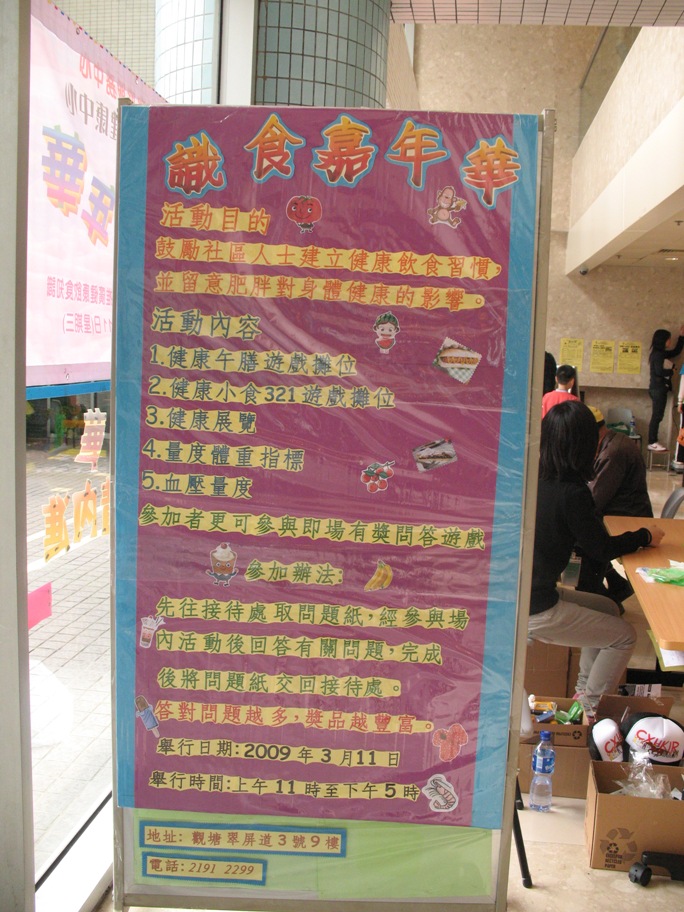 識食嘉年華
活動目的
鼓勵社區人士建立健康飲食習慣,
並留意肥胖對身體健康的影響。
活動內容
1.健康午膳遊戲攤位
2.健康小食321遊戲攤位
3.健康展覽
4.量度體重指標
5.血壓量度
參加者更可參與即場有獎問答遊戲
參加辦法:
先往接待處取問題紙,經參與場
內活動後回答有關問題,完成
後將問題紙交回接待處。
答對問題越多,獎品越豐富。
舉行日期:2009年3月11日
舉行時間:上午11時至下午5時
地址: 觀塘翠屏道3號9樓
電話: 2191 2299